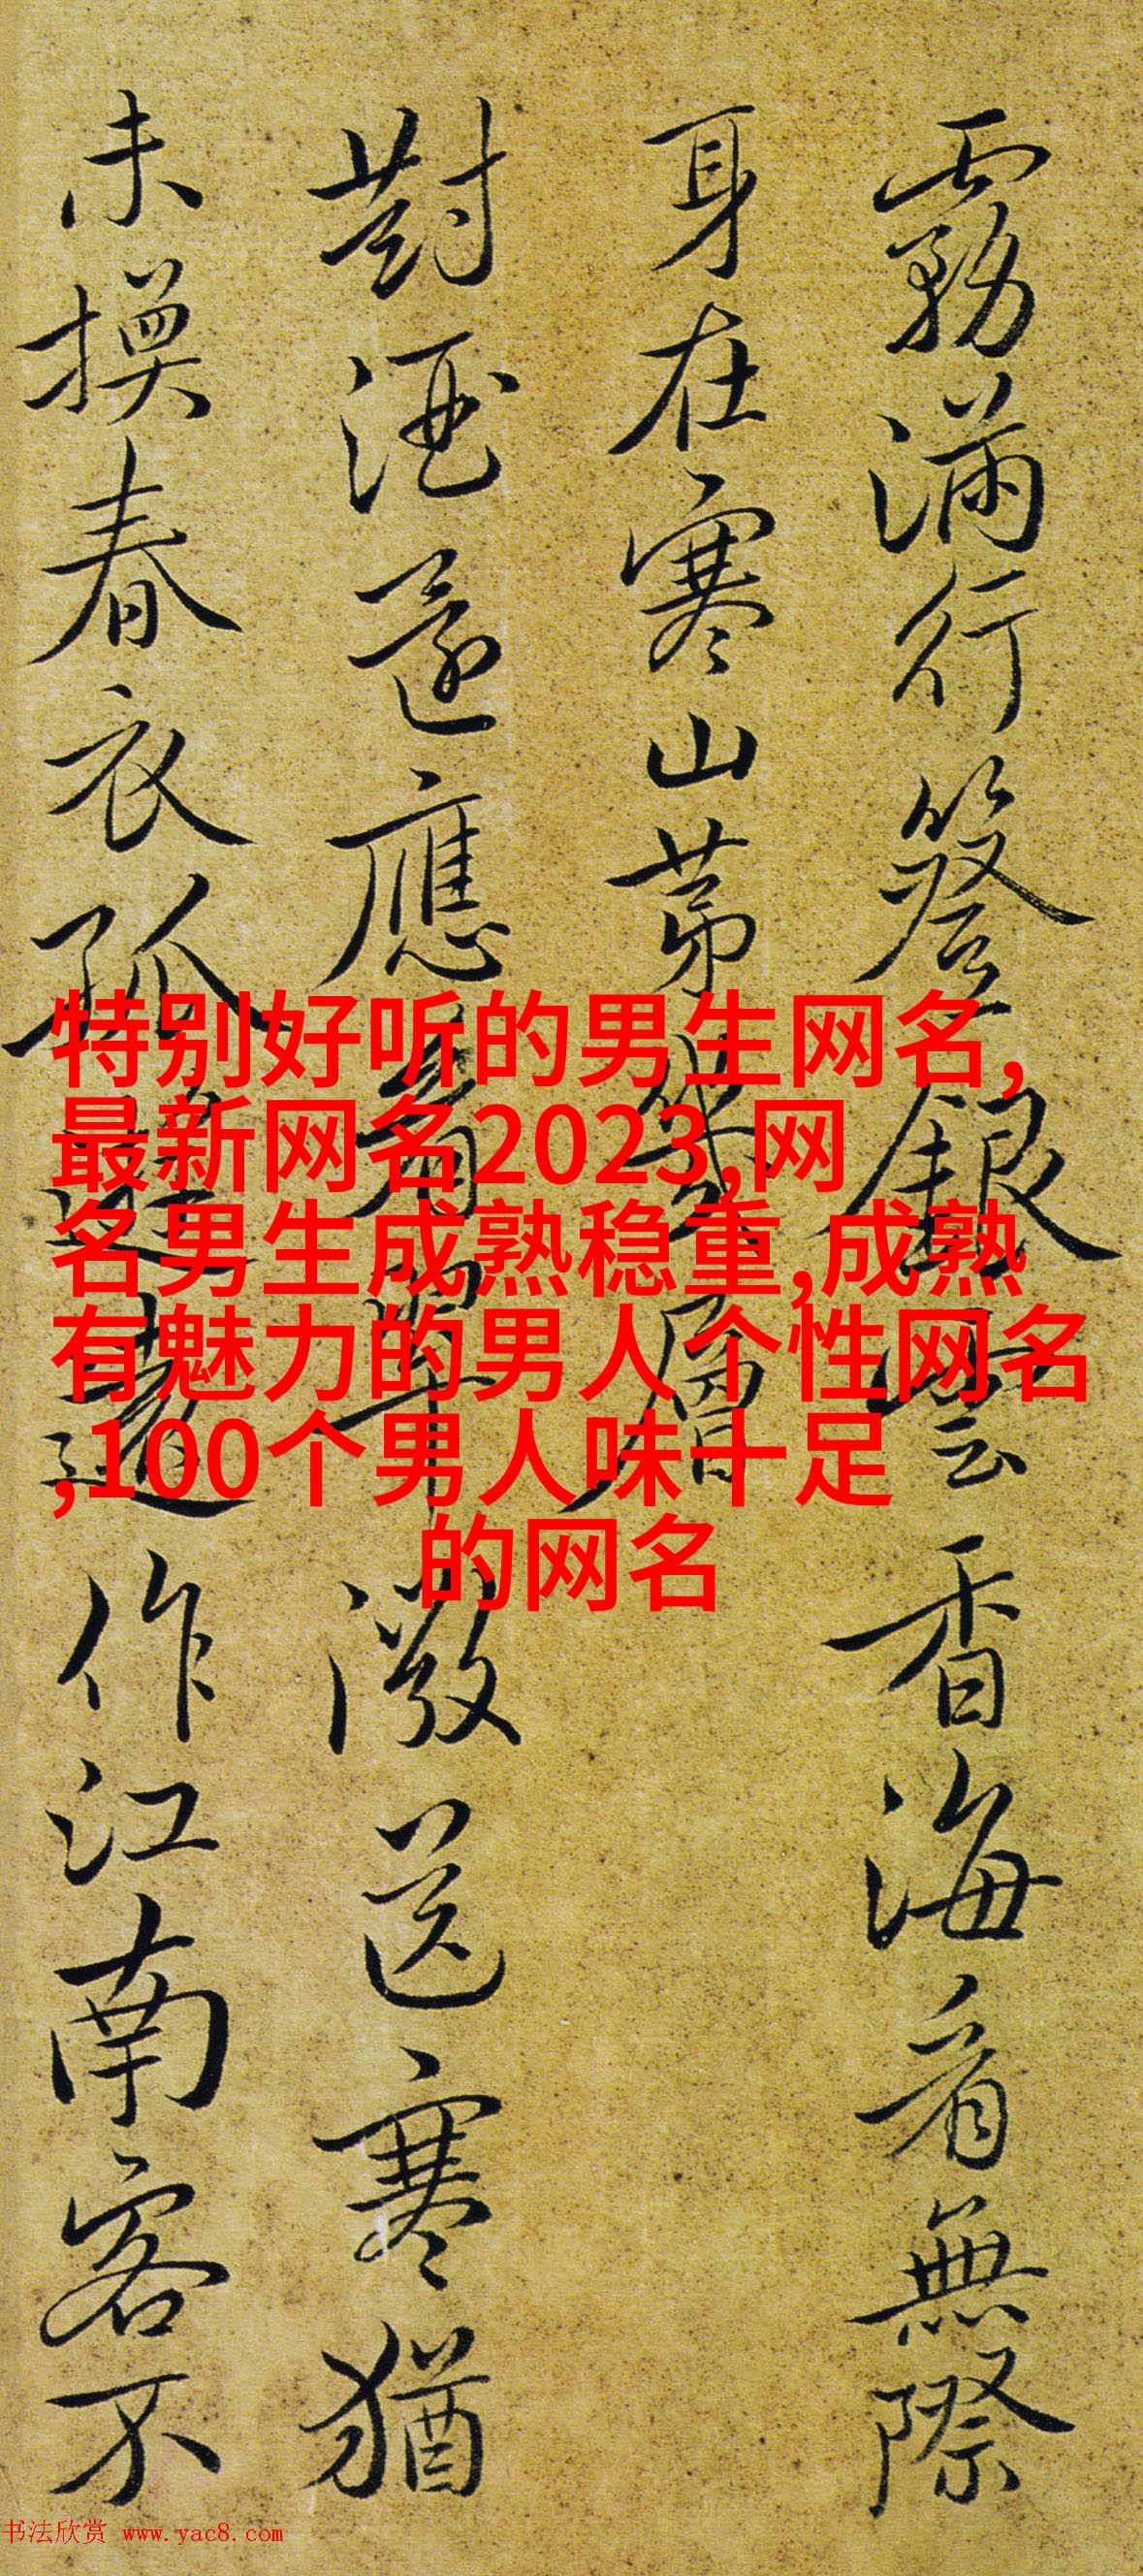 霧滿行簦銀雲香海看無際
身在寒山第幾層
對酒還應看草
澂送寒猶
未換春衣孤
作江南客不
特别好听的男生网名,
最新网名2023,网
名男生成熟稳重,成熟
有魅力的男人个性网名
,100个男人味十足
的网名
书法欣赏 www.yac8.com